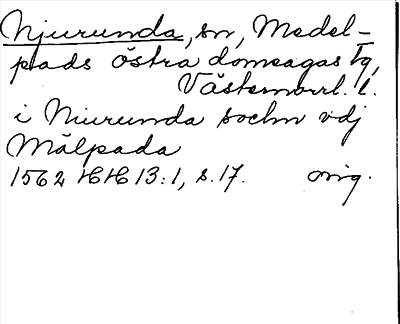 Njurunda, sn, Medel-
pads östra domsagas tg,
Västernorrl. l.
i Niurunda sochn vdj
Mälpada
1562 HH 13:1, s. 17. orig.